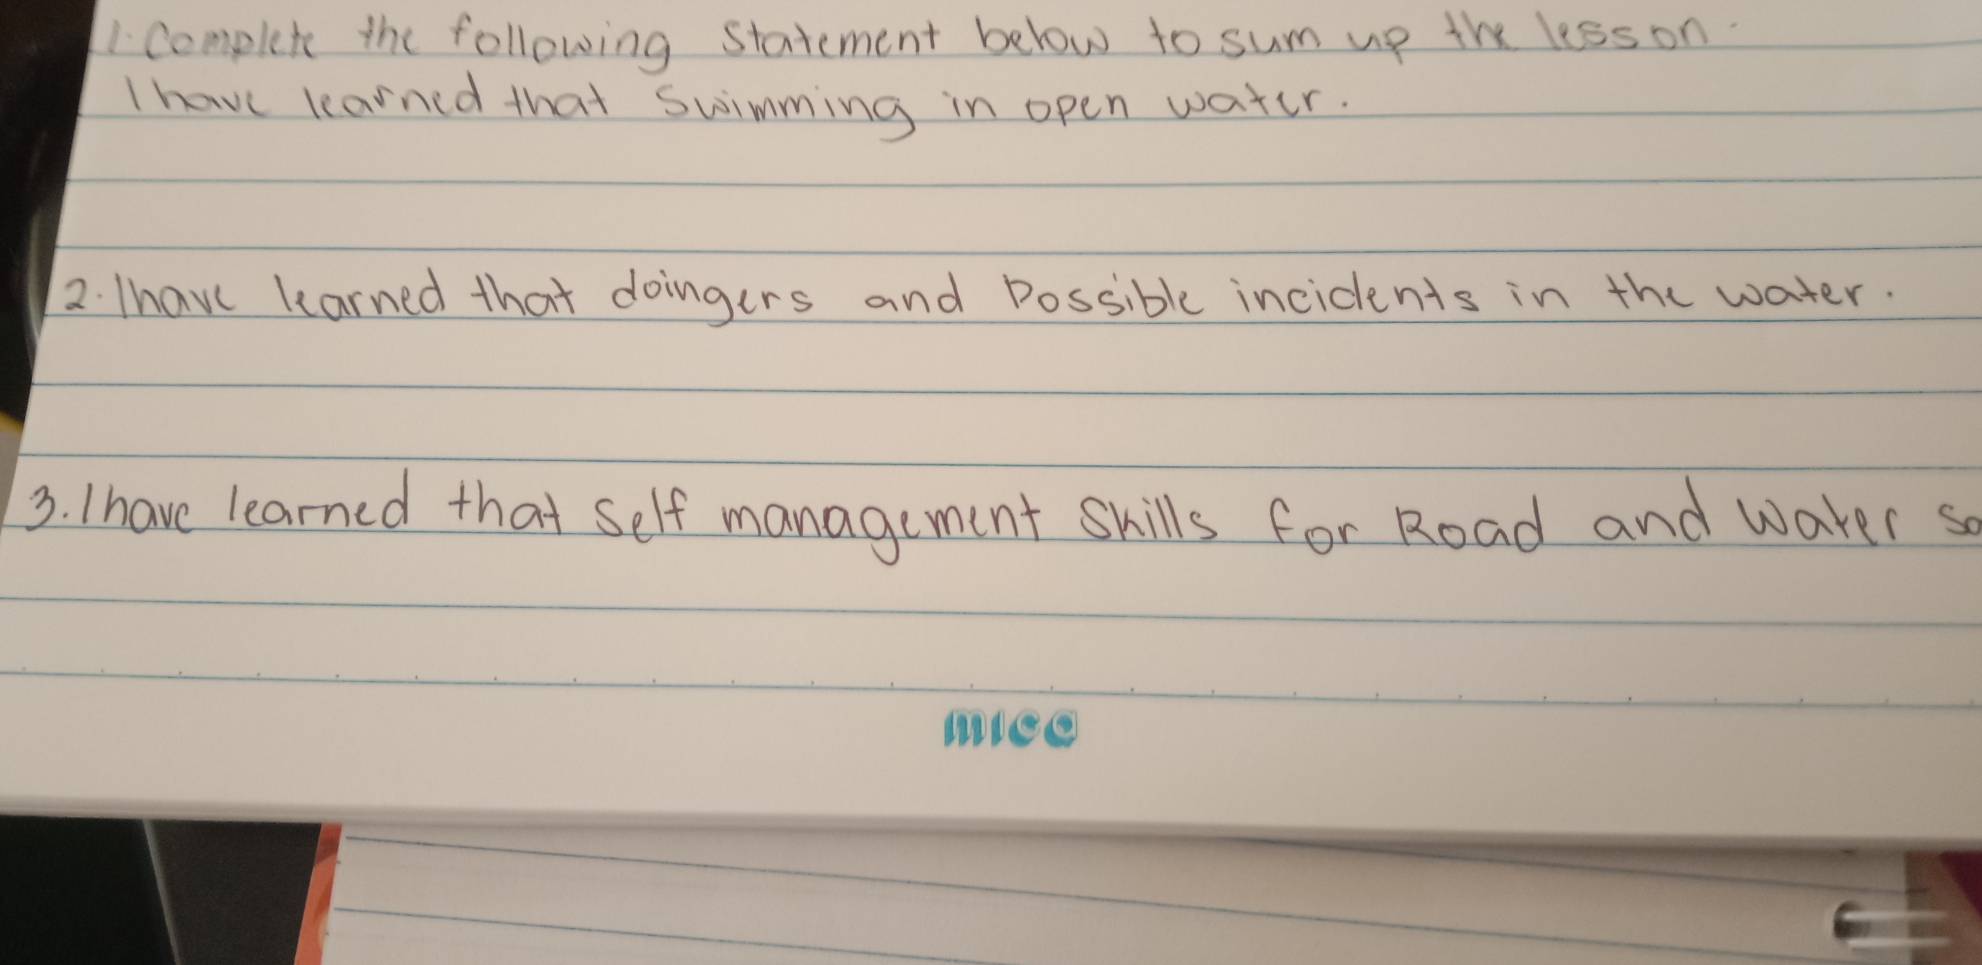 1. Complete the following statement below to sum up the lesson.
I have learned that swimming in open water.
2. I have learned that doingers and Possible incidents in the water.
3. I have learned that self management skills for Road and Water sa
mica